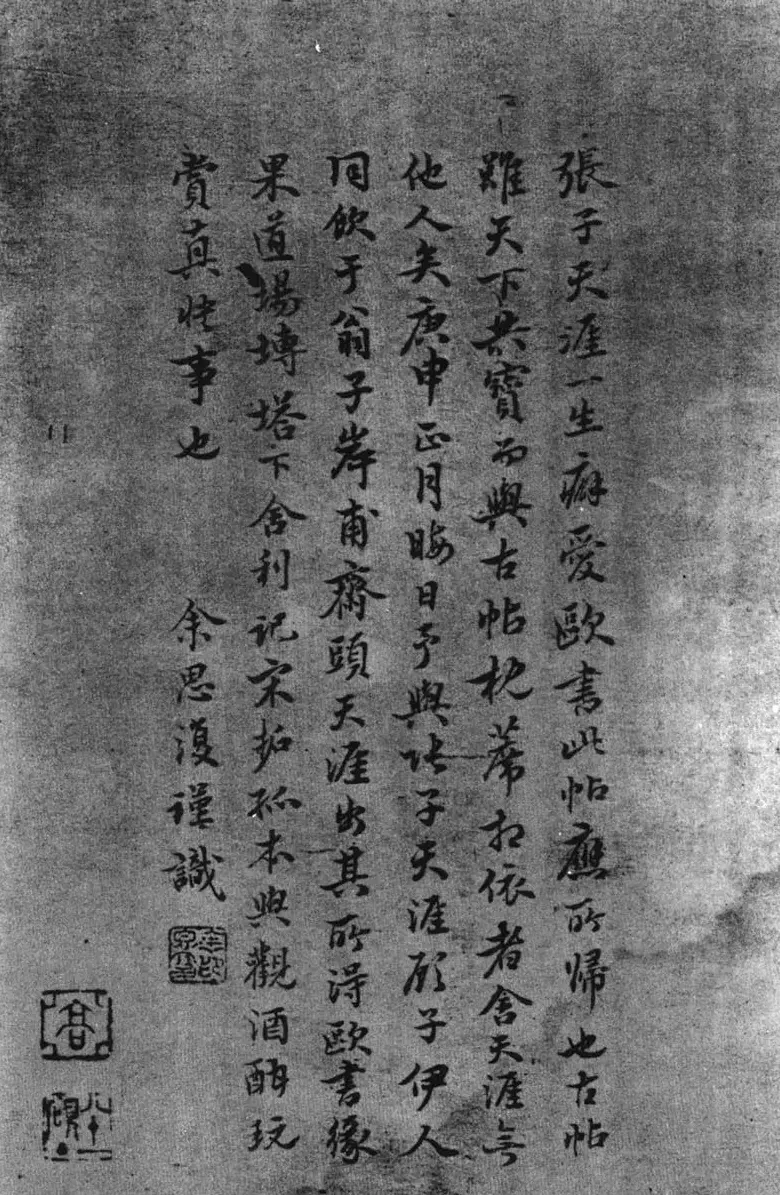 張子天涯一生癖愛歐書此帖應所歸也古帖
雖天下共寶而與古帖枕藉相依者舍天涯無
他人矣庚申正月晦日予與張子天涯顧子伊人
同飲于翁子岸甫齋頭天涯出其所得歐書緣
果道場塼塔下舍利記宋拓孤本與觀酒酣玩
賞真快事也
余思復謹識
高